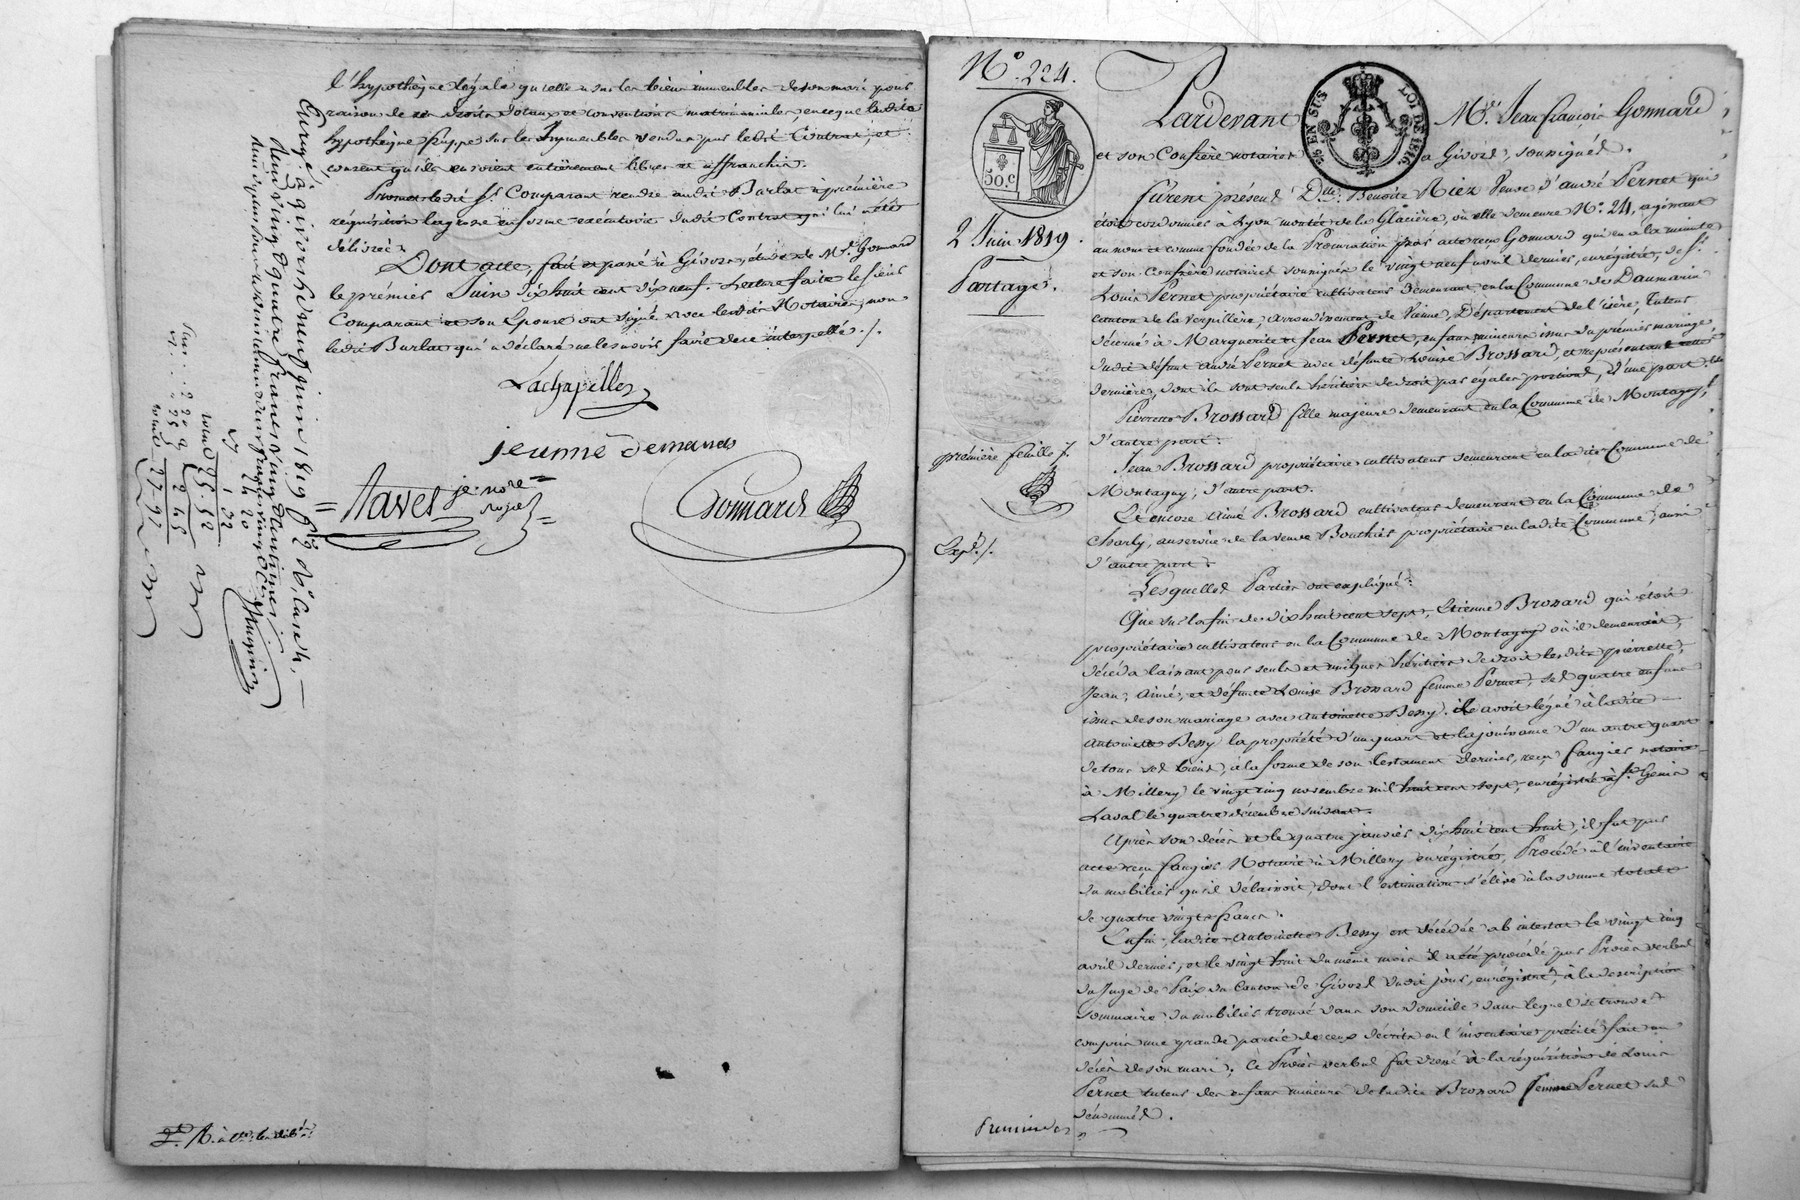 l'hypothèque légale qu'elle a sur les biens immeubles de son mari pour
raison de ses droits dotaux et conventions matrimoniales, en ce que ladite
hypothèque frappe sur les immeubles vendus par ledit Contrat, et
consent qu'ils en soient entièrement libres et affranchis.
Promet ledit Sr. Comparant rendre audit Burlat à première
réquisition la grosse en forme exécutoire dudit Contrat qui lui a été
délivrée.
Dont acte, fait et passé à Givors, étude de Me. Gonnard
le premier Juin dix huit cent dix neuf. Lecture faite le Sieur
Comparant et son Epouse ont signé avec lesdits Notaires, non
ledit Burlat qui a déclaré ne le savoir faire de ce interpellé ./.
Lachapelle
jeunne demards
Favel jne nore
Gonnard
Enrgé. à givors le neuf juin 1819 fo
deux vingt quatre francs vingt
No. 224.
50.C
2 Juin 1819.
Partage.
première feuille ./.
Expd. ./.
Pardevant Me. Jean françois Gonnard
EN SUS LOI DE 1816
et son Confrère notaires à Givors, soussignés.
furent présens Dlle. Benoite Riez veuve d'andré Pernet qui
étoit cordonnier à Lyon montée de la Glacière, où elle demeure No. 24, agissant
au nom et comme fondée de la Procuration par acte reçu Gonnard qui en a la minute
et son Confrère notaires soussignés le vingt neuf avril dernier, enregistré, de Sr.
Louis Pernet propriétaire cultivateur demeurant en la Commune de Daumarin
canton de la verpillère, arrondissement de Vienne, Département de l'isère, Tuteur
décerné à Marguerite et Jean Pernet, enfans mineurs issus du premier mariage
dudit défunt andré Pernet avec défunte Louise Brossard, et représentant cette
dernière, dont ils sont seuls héritiers de droit par égales portions, d'une part.
Pierrette Brossard fille majeure demeurant en la Commune de Montagny,
d'autre part.
Jean Brossard propriétaire cultivateur demeurant en ladite Commune de
Montagny, d'autre part.
Et encore Aimé Brossard cultivateur demeurant en la Commune de
Charly, au service de la veuve Bouthier propriétaire en ladite Commune, aussi
d'autre part.
Lesquelles Parties ont expliqué:
Que sur la fin de dix huit cent sept, Etienne Brossard qui étoit
propriétaire cultivateur en la Commune de Montagny où il demeuroit,
décéda laissant pour seuls et uniques héritiers de droit lesdits pierrette,
Jean, Aimé, et défunte Louise Brossard femme Pernet, ses quatre enfans
issus de son mariage avec Antoinette Bessy. il avoit légué à ladite
Antoinette Bessy la propriété d'un quart et la jouissance d'un autre quart
de tous ses biens, à la forme de son testament dernier, reçu fangier notaire
à Millery le vingt cinq novembre mil huit cent sept, enregistré à St. Genis
Laval le quatre décembre suivant.
Après son décès et le quatre janvier dix huit cent huit, il fut par
acte reçu fangier Notaire à Millery enregistré, Procédé à l'inventaire
du mobilier qu'il délaissoit, dont l'estimation s'élève à la somme totale
de quatre vingt francs.
Enfin, ladite Antoinette Bessy est décédée ab intestat le vingt cinq
avril dernier, et le vingt huit du même mois il a été procédé par Procès verbal
du Juge de Paix du Canton de Givors dudit jour, enregistré, à la description
sommaire du mobilier trouvé dans son domicile dans lequel se trouve
compris une grande partie de ceux décrits en l'inventaire précité fait au
décès de son mari, Ce Procès verbal fut dressé à la réquisition de Louis
Pernet tuteur des enfans mineurs de ladite Brossard femme Pernet sus
dénommés.